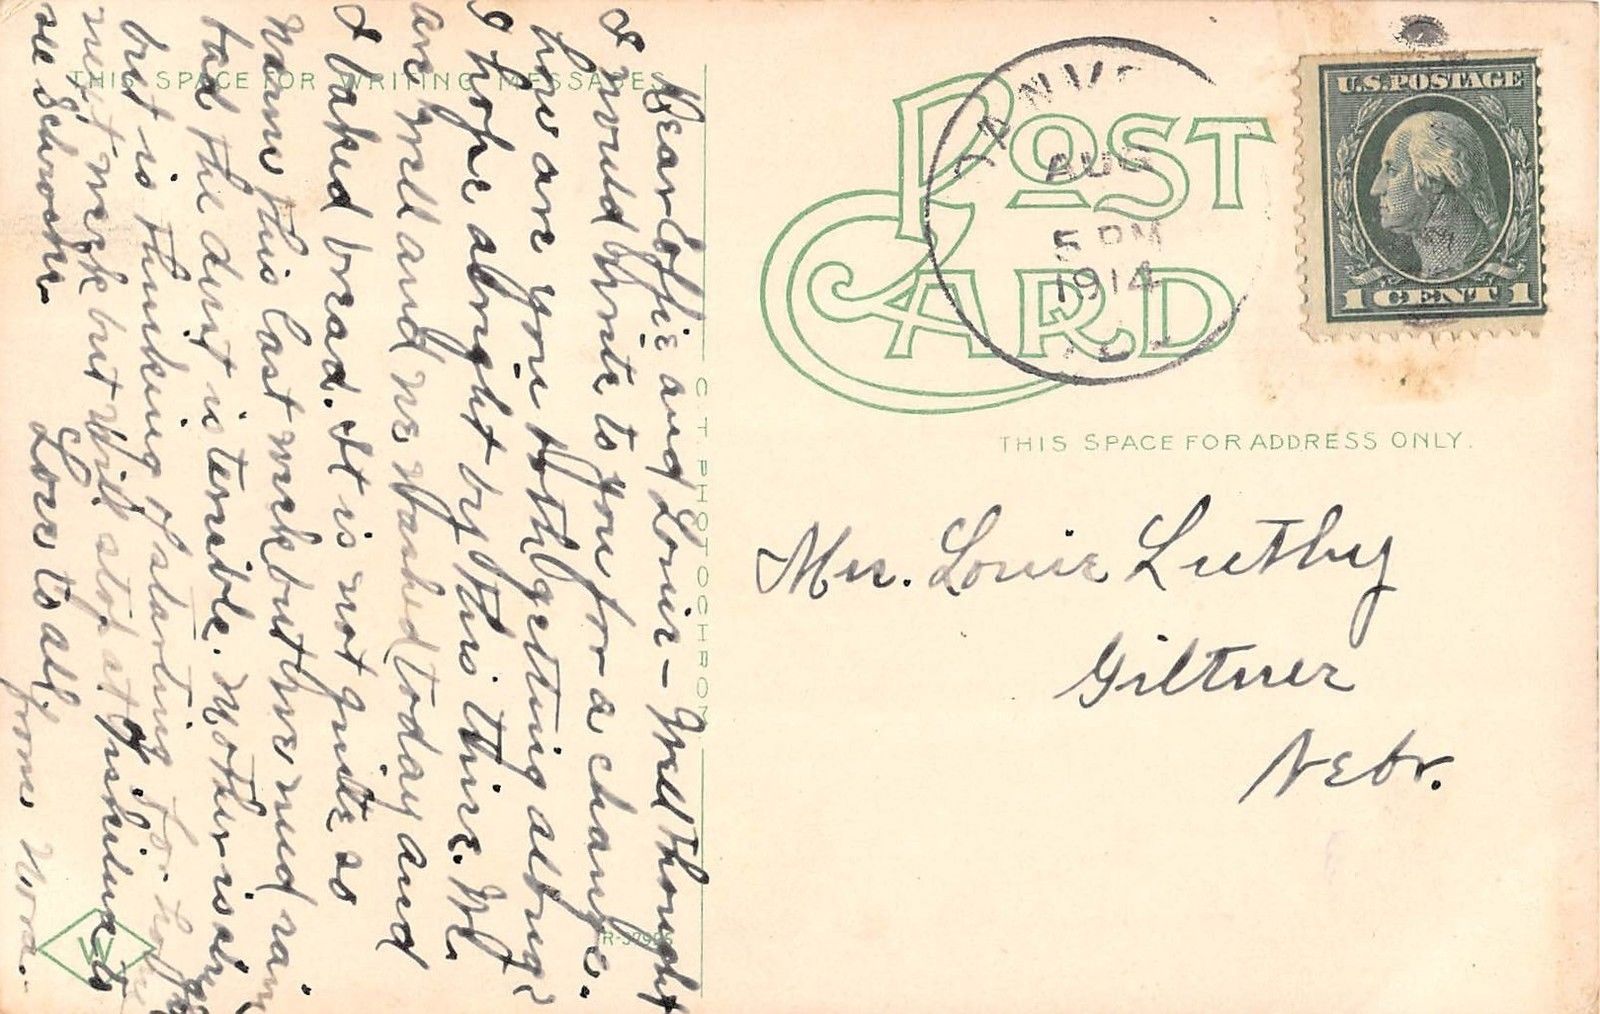 THIS SPACE FOR WRITING MESSAGES
Dear Coffie and Louie - Well thought
I would write to you for a change.
how are you both getting alrught?
I hope alright by this time. We
are well and we washed today and
I baked bread. It is not quite so
warm this last week but we need rain
bad the dust is terrible. Mother is
but is thinking of starting for home
next week but will stop at to
see Schroers.
Love to all from Nora.
C.T. PHOTOCHROM
R-
POST
CARD
AUG
5 PM
1914
U.S. POSTAGE
1 CENT 1
THIS SPACE FOR ADDRESS ONLY.
Mrs. Louie Luthy
Giltner
Nebr.